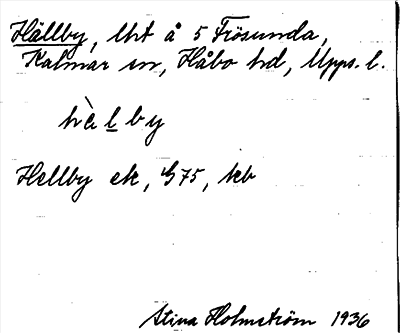 Hällby, Urt å 5 Frösunda,
Kalmar sn, Håbo hd, Upps. l.
hàl̲by
Hellby ek, G75, kb
Stina Holmström 1936